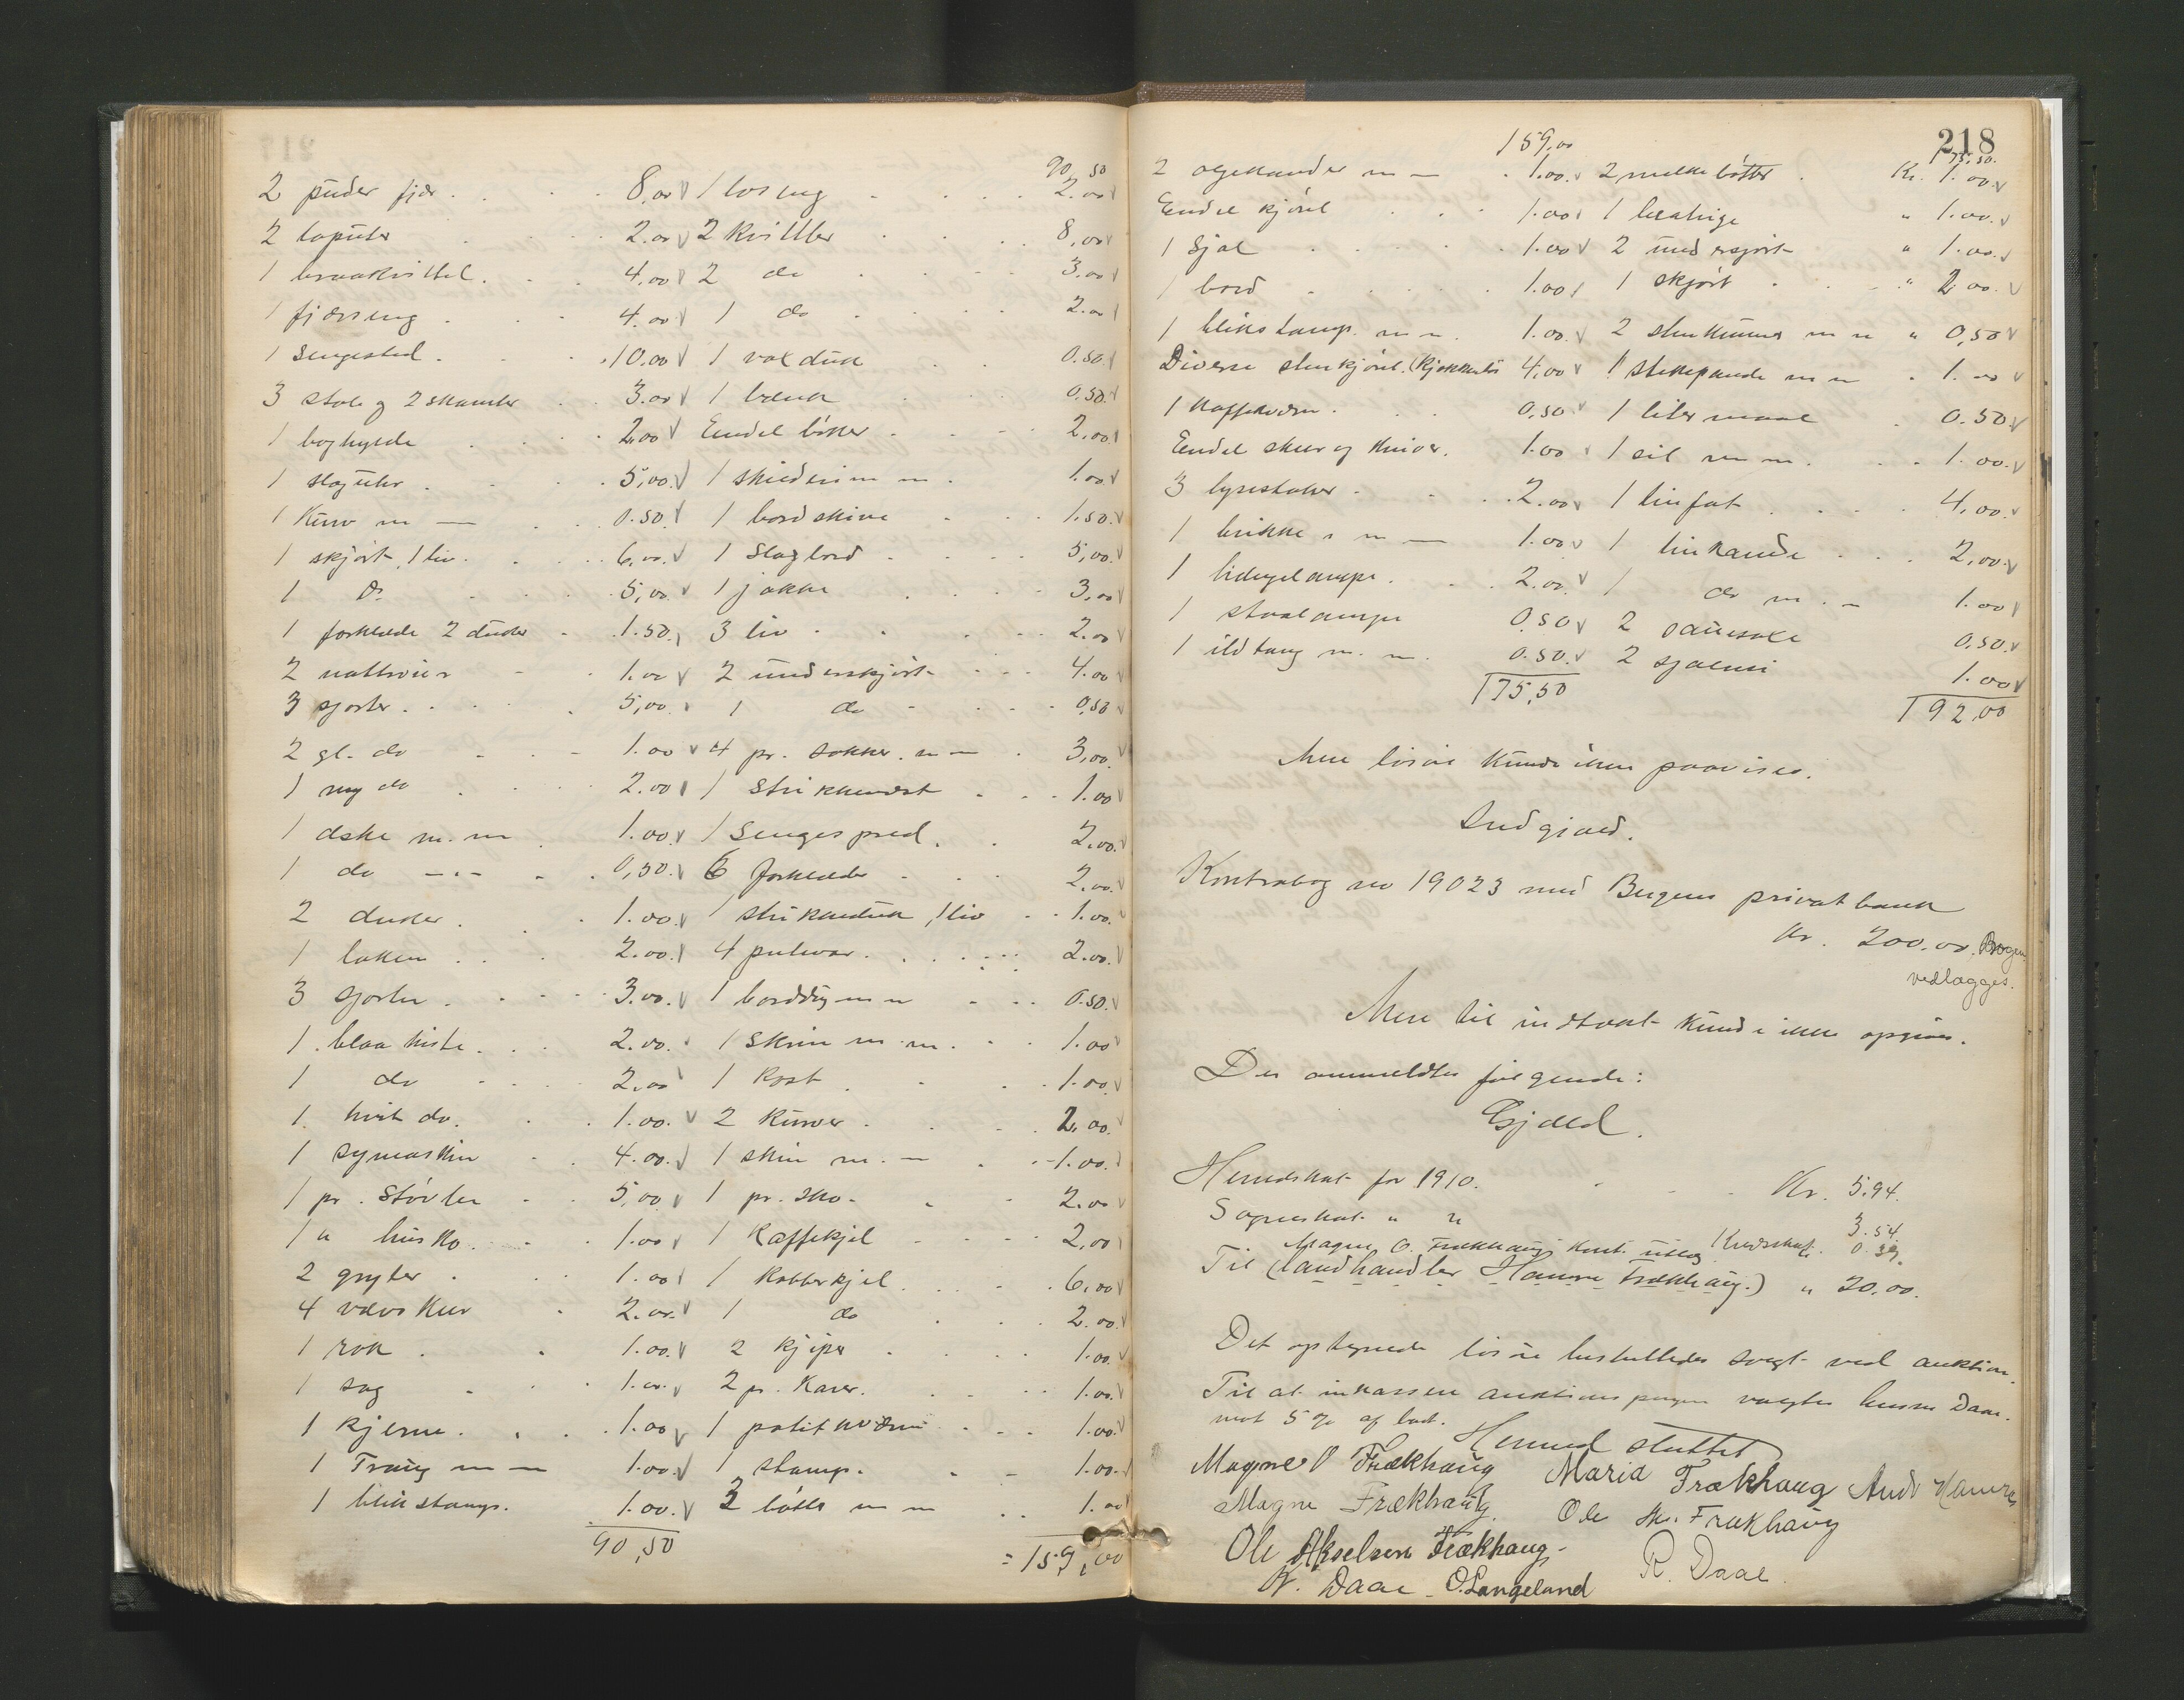 90,50
2 puder fjær. 8,00 1 loseng 2.00
2 loputer 2.00 2 kvittler 8,00
1 braakvittel. 4,00 2 do 3,00
1 fjærseng 4,00 1 do 2.00
1 sengested. 10.00 1 voxduk 0.50
3 stole og 2 skamler 3.00 1 bænk 0.50
1 boghylde 2,00 Endel bøker 2,00
1 slaguhr 5,00 1 skilderi m m. 1.00
1 Kurv m — 0.50 1 bordskive 1.50
1 skjørt, 1 liv. 6,00 1 slagbord 5,00
1 Do 5,00 1 jakke 3,00
1 forklæde 2 duker 1.50 3 liv 2.00
2 nattrøier 1.00 2 underskjørt 4.00
3 sjorter. 5,00 1 do 0,50
2 gl. do 1.00 4 pr. sokker. m — 3,00
1 ny do 2.00 1 strikkevest 1.00
1 æske m.m 1.00 1 Sengespred. 2.00
1 do -.- 0,50 6 forklæder 2.00
2 duker. 1.00 1 strikkeduk, 1 liv 1.00
1 laken 2.00 4 putevar. 2.00
3 sjorter. 3.00 1 borddug m m 0.50
1. blaa kiste. 2.00 1 Skrin m.m. 1.00
1 do 2.00 1 Kost 1.00
1. hvit do. 1.00 2 Kurver. 2.00
1 symaskin 4.00 1 skrin m.— 1.00
1 pr. støvler 5,00 1 pr. sko. 2.00
1 " husko. 1.00 1 Kaffekjel 2,00
2 gryter 1.00 1 Kobberkjel. 6,00
4 vævskeer 2.00 1 do 2.00
1 rok. 1.00 2 kjiper 1.00
1 sag 1.00 2 pr. Karer. 1.00
1 kjerne. 1.00 1 potitkværn 1.00
1 Traug m — 1.00 1 stamp. 1.00
1 blikstamp. 1.00 2 bøtter m m 1.00
90,50 = 159,00
218
159,00 175,50.
2 oljekander m — 1.00 2 melkebøtter Kr. 1.00
Endel kjørel 1.00 1 " 1.00
1 Sjal 1.00 2 undersjørt " 1.00
1 bord 1.00 1 skjørt " 2.00
1 blikstamp. m m. 1.00 2 stenkummer m m " 0,50
Diverse stenkjørel. (kjøkkentøi 4,00 1 stekepande m m 1.00
1 Kaffekværn. 0,50 1 litermaal 0.50
Endel skeer og kniver. 1.00 1 sil m m. 1.00
3 lysestaker 2.00 1 tinfat 4,00
1 brikke m — 1.00 1 tinkande 2,00
1 hængelampe. 2.00 1 do m.— 1.00
1 staalampe 0.50 2 sauesaxe 0.50
1 ildtang m.m. 0.50 2 1.00
175,50 192,00
Mere løsøre kunde ikke paavises.
Indgjæld.
Kontrabog no 19023 med Bergens privatbank
Kr. 200.00. Bogen
vedlægges.
Mere til indtækt kunde ikke opgives.
Der anmeldtes følgende:
Gjæld.
Herredskat for 1910. Kr. 5.94.
Sogneskat " " 3.54.
Magne O. Frækhaug kont. utlæg Kredsskat. 0.39.
Til (landhandler Hamre Frækhaug.) " 20.00.
Det optegnede løsøre besluttedes solgt ved auktion.
Til at inkassere auktionspengene valgtes lensm Daae.
mot 5 % af bud.
Hermed sluttet
Magne O Frækhaug Maria Frækhaug Andr Hamre
Magne Frækhaug. Ole Ms. Frækhaug
Ole Akselsen Frækhaug
N. Daae O. Langeland R. Daae